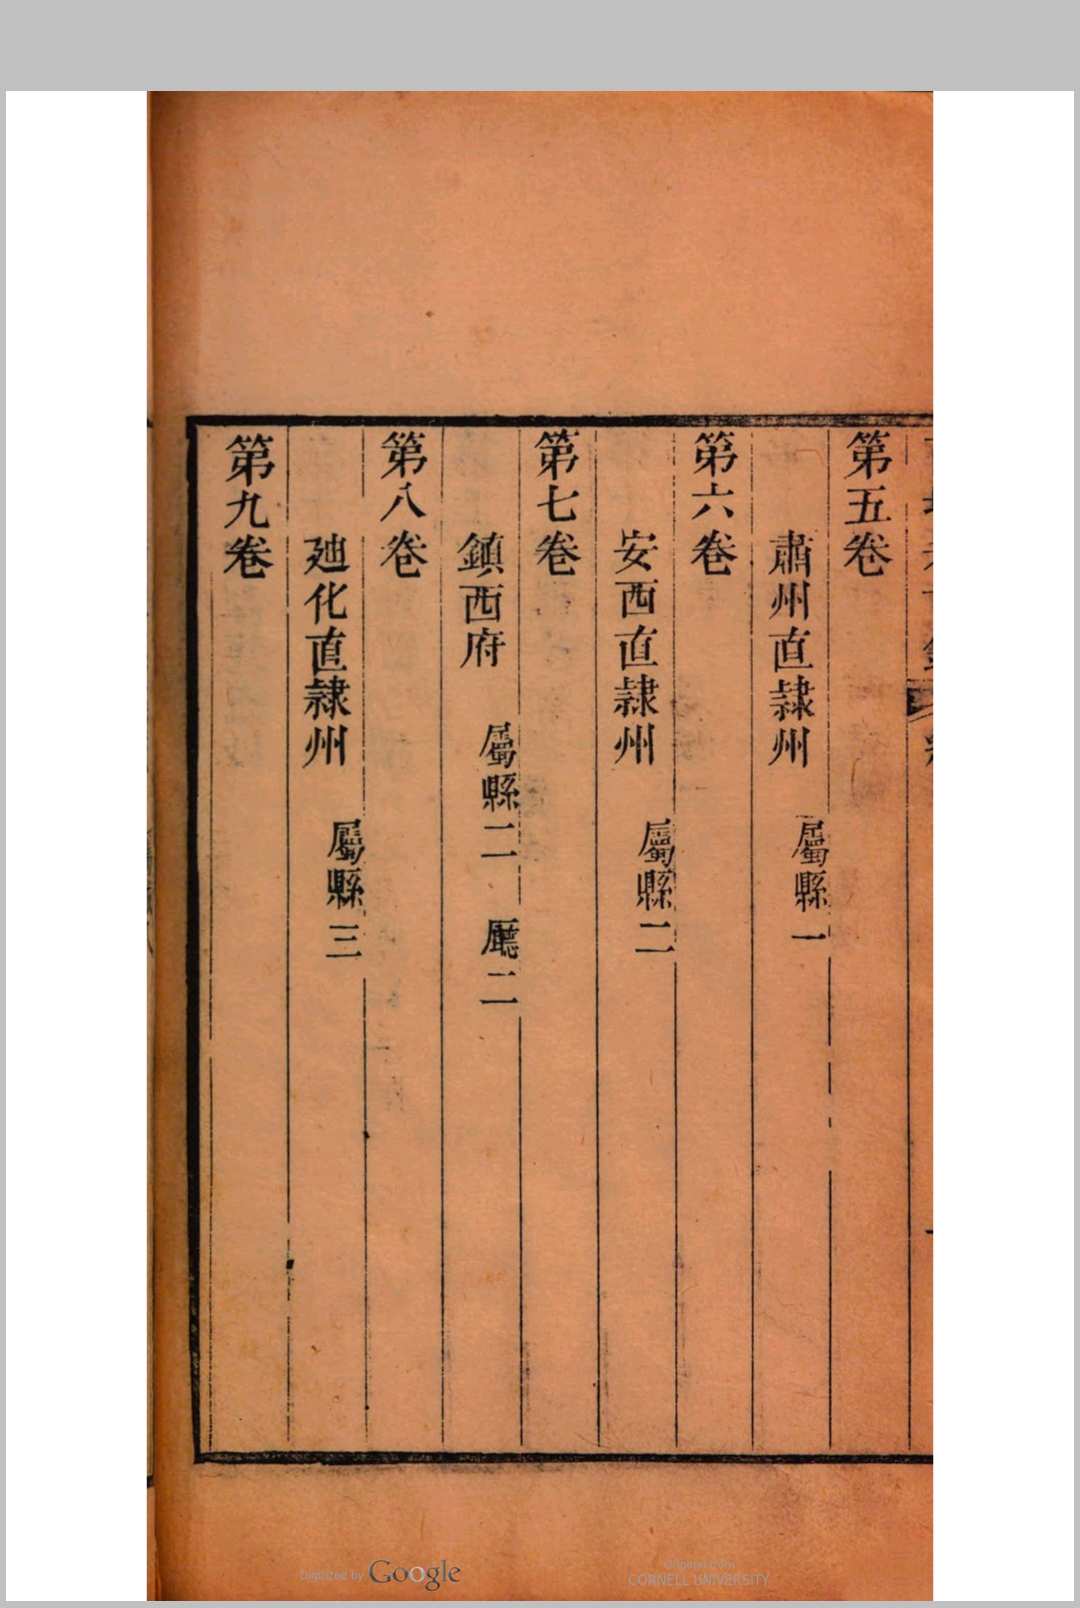 第五卷
肅州直隷州　屬縣一
第六卷
安西直隷州　屬縣二
第七卷
鎮西府　屬縣二　廳二
第八卷
廸化直隷州　屬縣三
第九卷
Digitized by Google
Original from
CORNELL UNIVERSITY